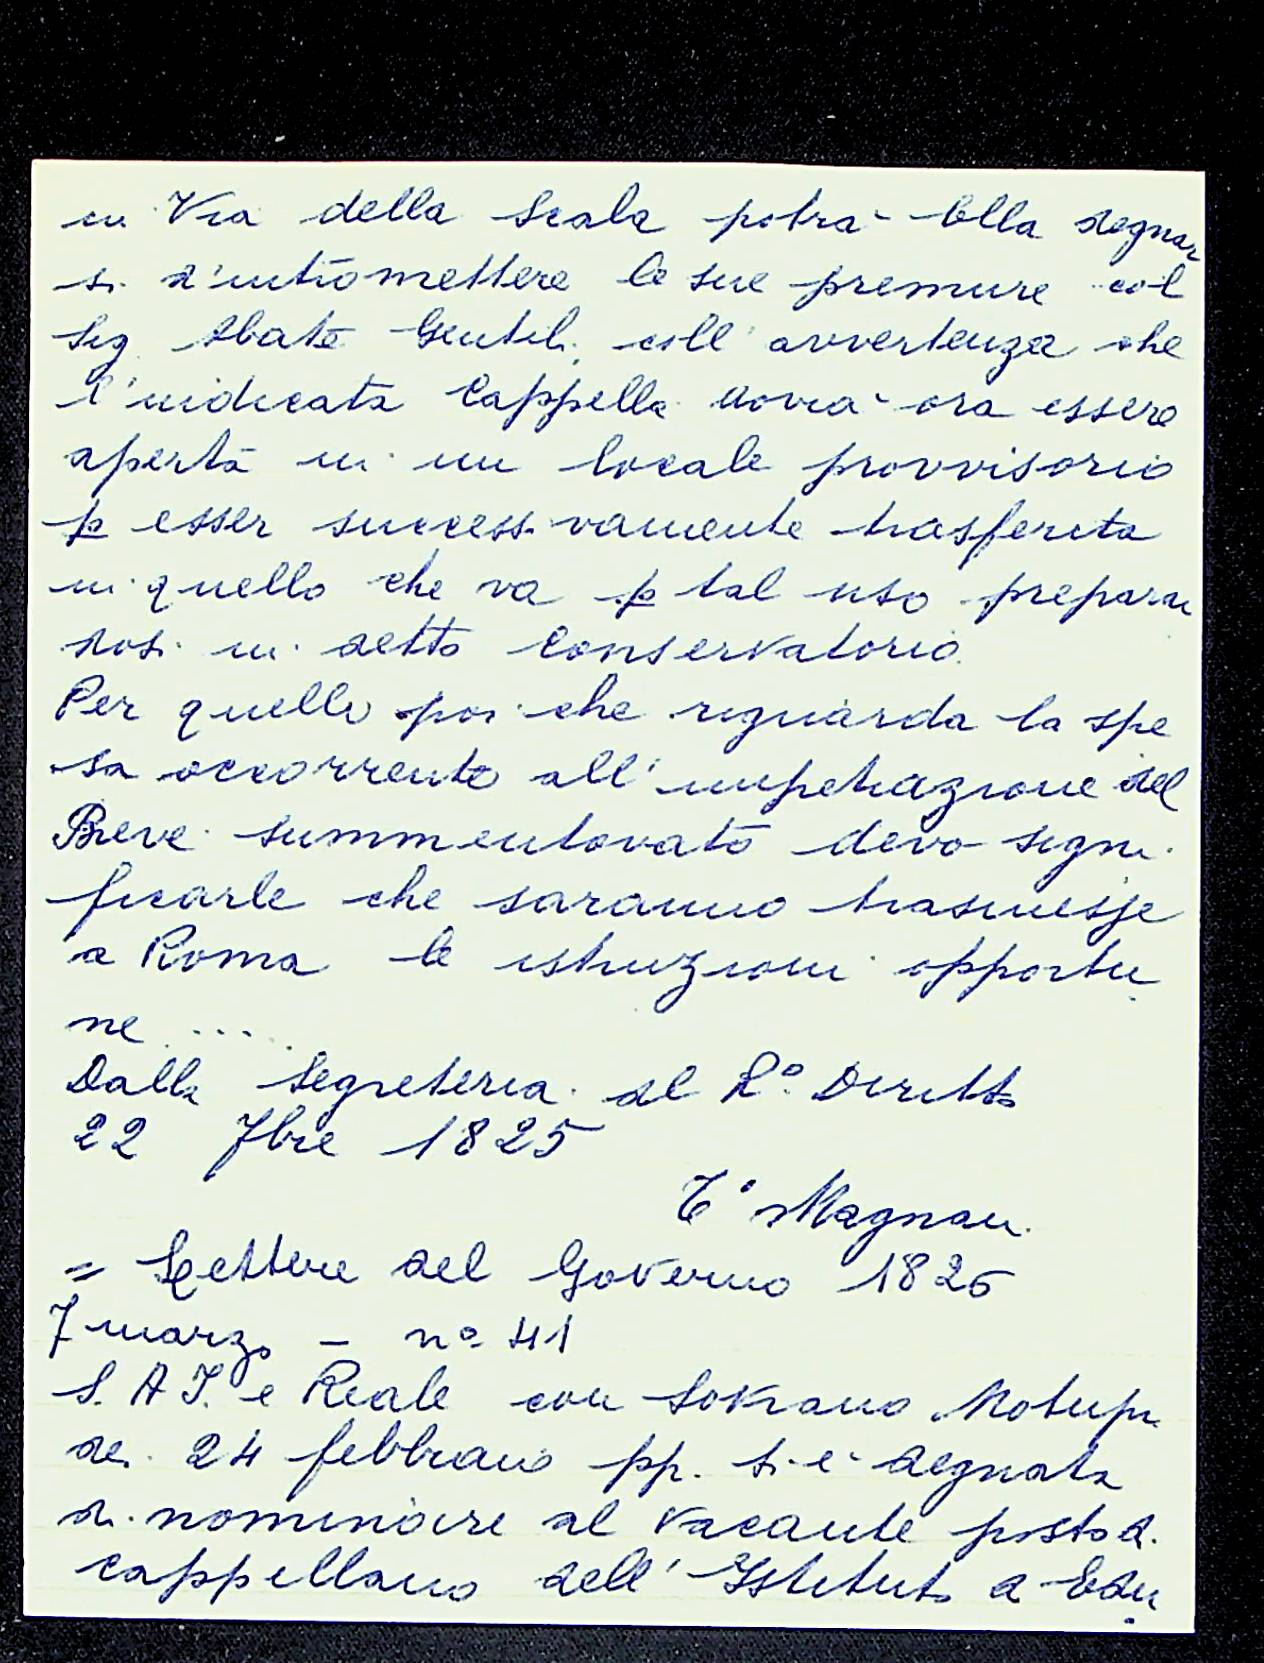 in Via della Scala potrà Ella degnar
si d'intromettere le sue premure col
Sig Abate Gentili, coll'avvertenza che
l'indicata Cappella dovrà ora essere
aperta in un locale provvisorio
p esser successivamente trasferita
in quello che va p tal uso preparan
dosi in detto Conservatorio.
Per quello poi che riguarda la spe
sa occorrente all'impetrazione del
Breve summentovato devo signi
ficarle che saranno trasmesse
a Roma le istruzioni opportu
ne ....
Dalla Segreteria del R° Diritto
22 7bre 1825
T° Magnani
= Lettere del Governo 1826
7 marzo - n° 41
S. A I. e Reale con Sovrano Motupr
de. 24 febbraio pp. si è degnata
di nominare al vacante posto d.
cappellano dell'Istituto d Edu